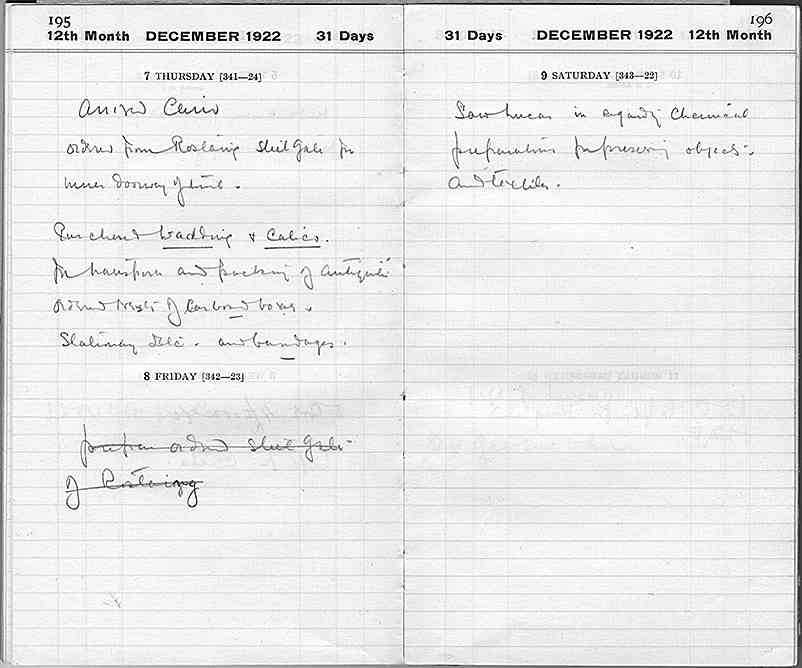 195
12th Month DECEMBER 1922 31 Days
7 THURSDAY [341—24]
Arrived Cairo
ordered from Rostaing steel gate for
inner doorway of tomb.
Purchased Wadding & Calico.
for transport and packing of antiquities
ordered of Carboard boxes.
Stationary etc. and bandages.
8 FRIDAY [342—23]
ordered steel gate
of Rostaing
196
31 Days DECEMBER 1922 12th Month
9 SATURDAY [343—22]
Saw Lucas in regarding Chemical
preparations for preserving objects
and textiles.